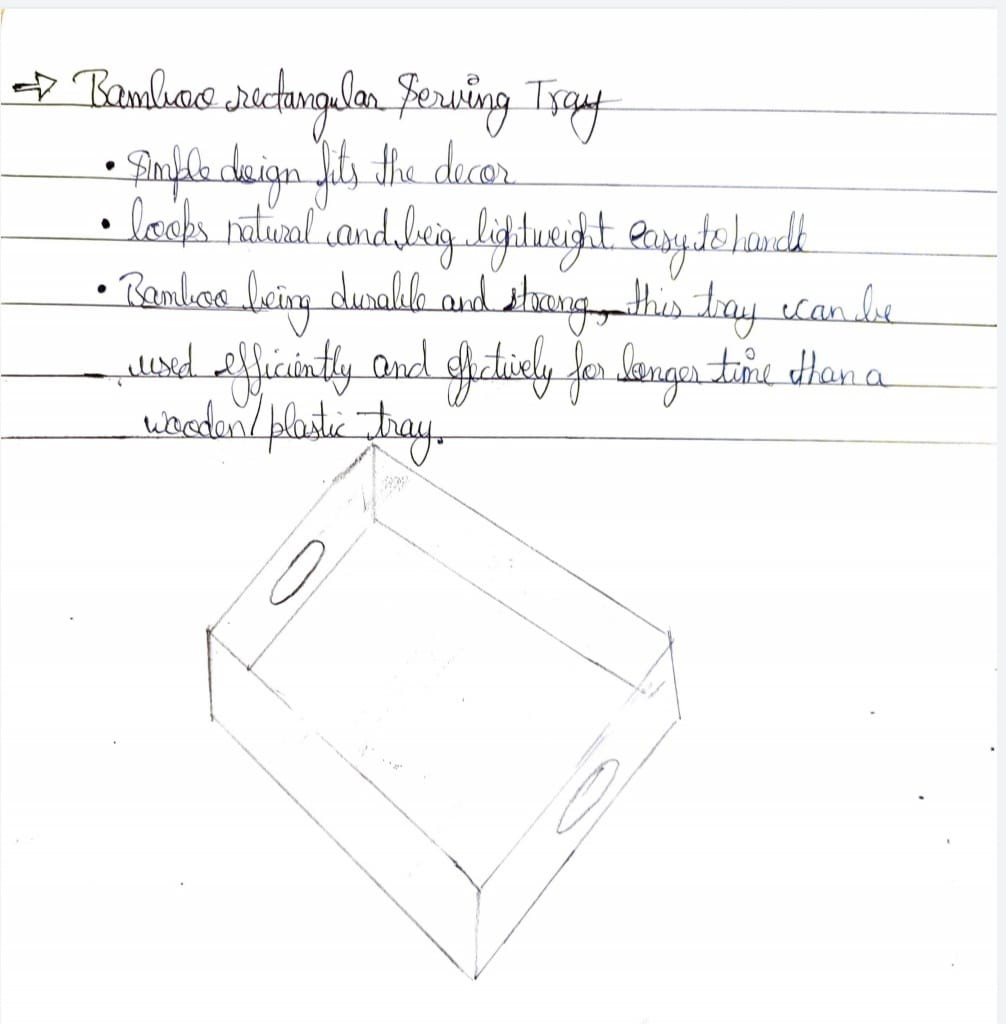 ⇒ Bamboo rectangular Serving Tray
• Simple deign fits the decor
• looks natural and beig lightweight easy to handle
• Bamboo being durable and strong, this tray can be
used efficiently and effectively for longer time than a
wooden/plastic tray.